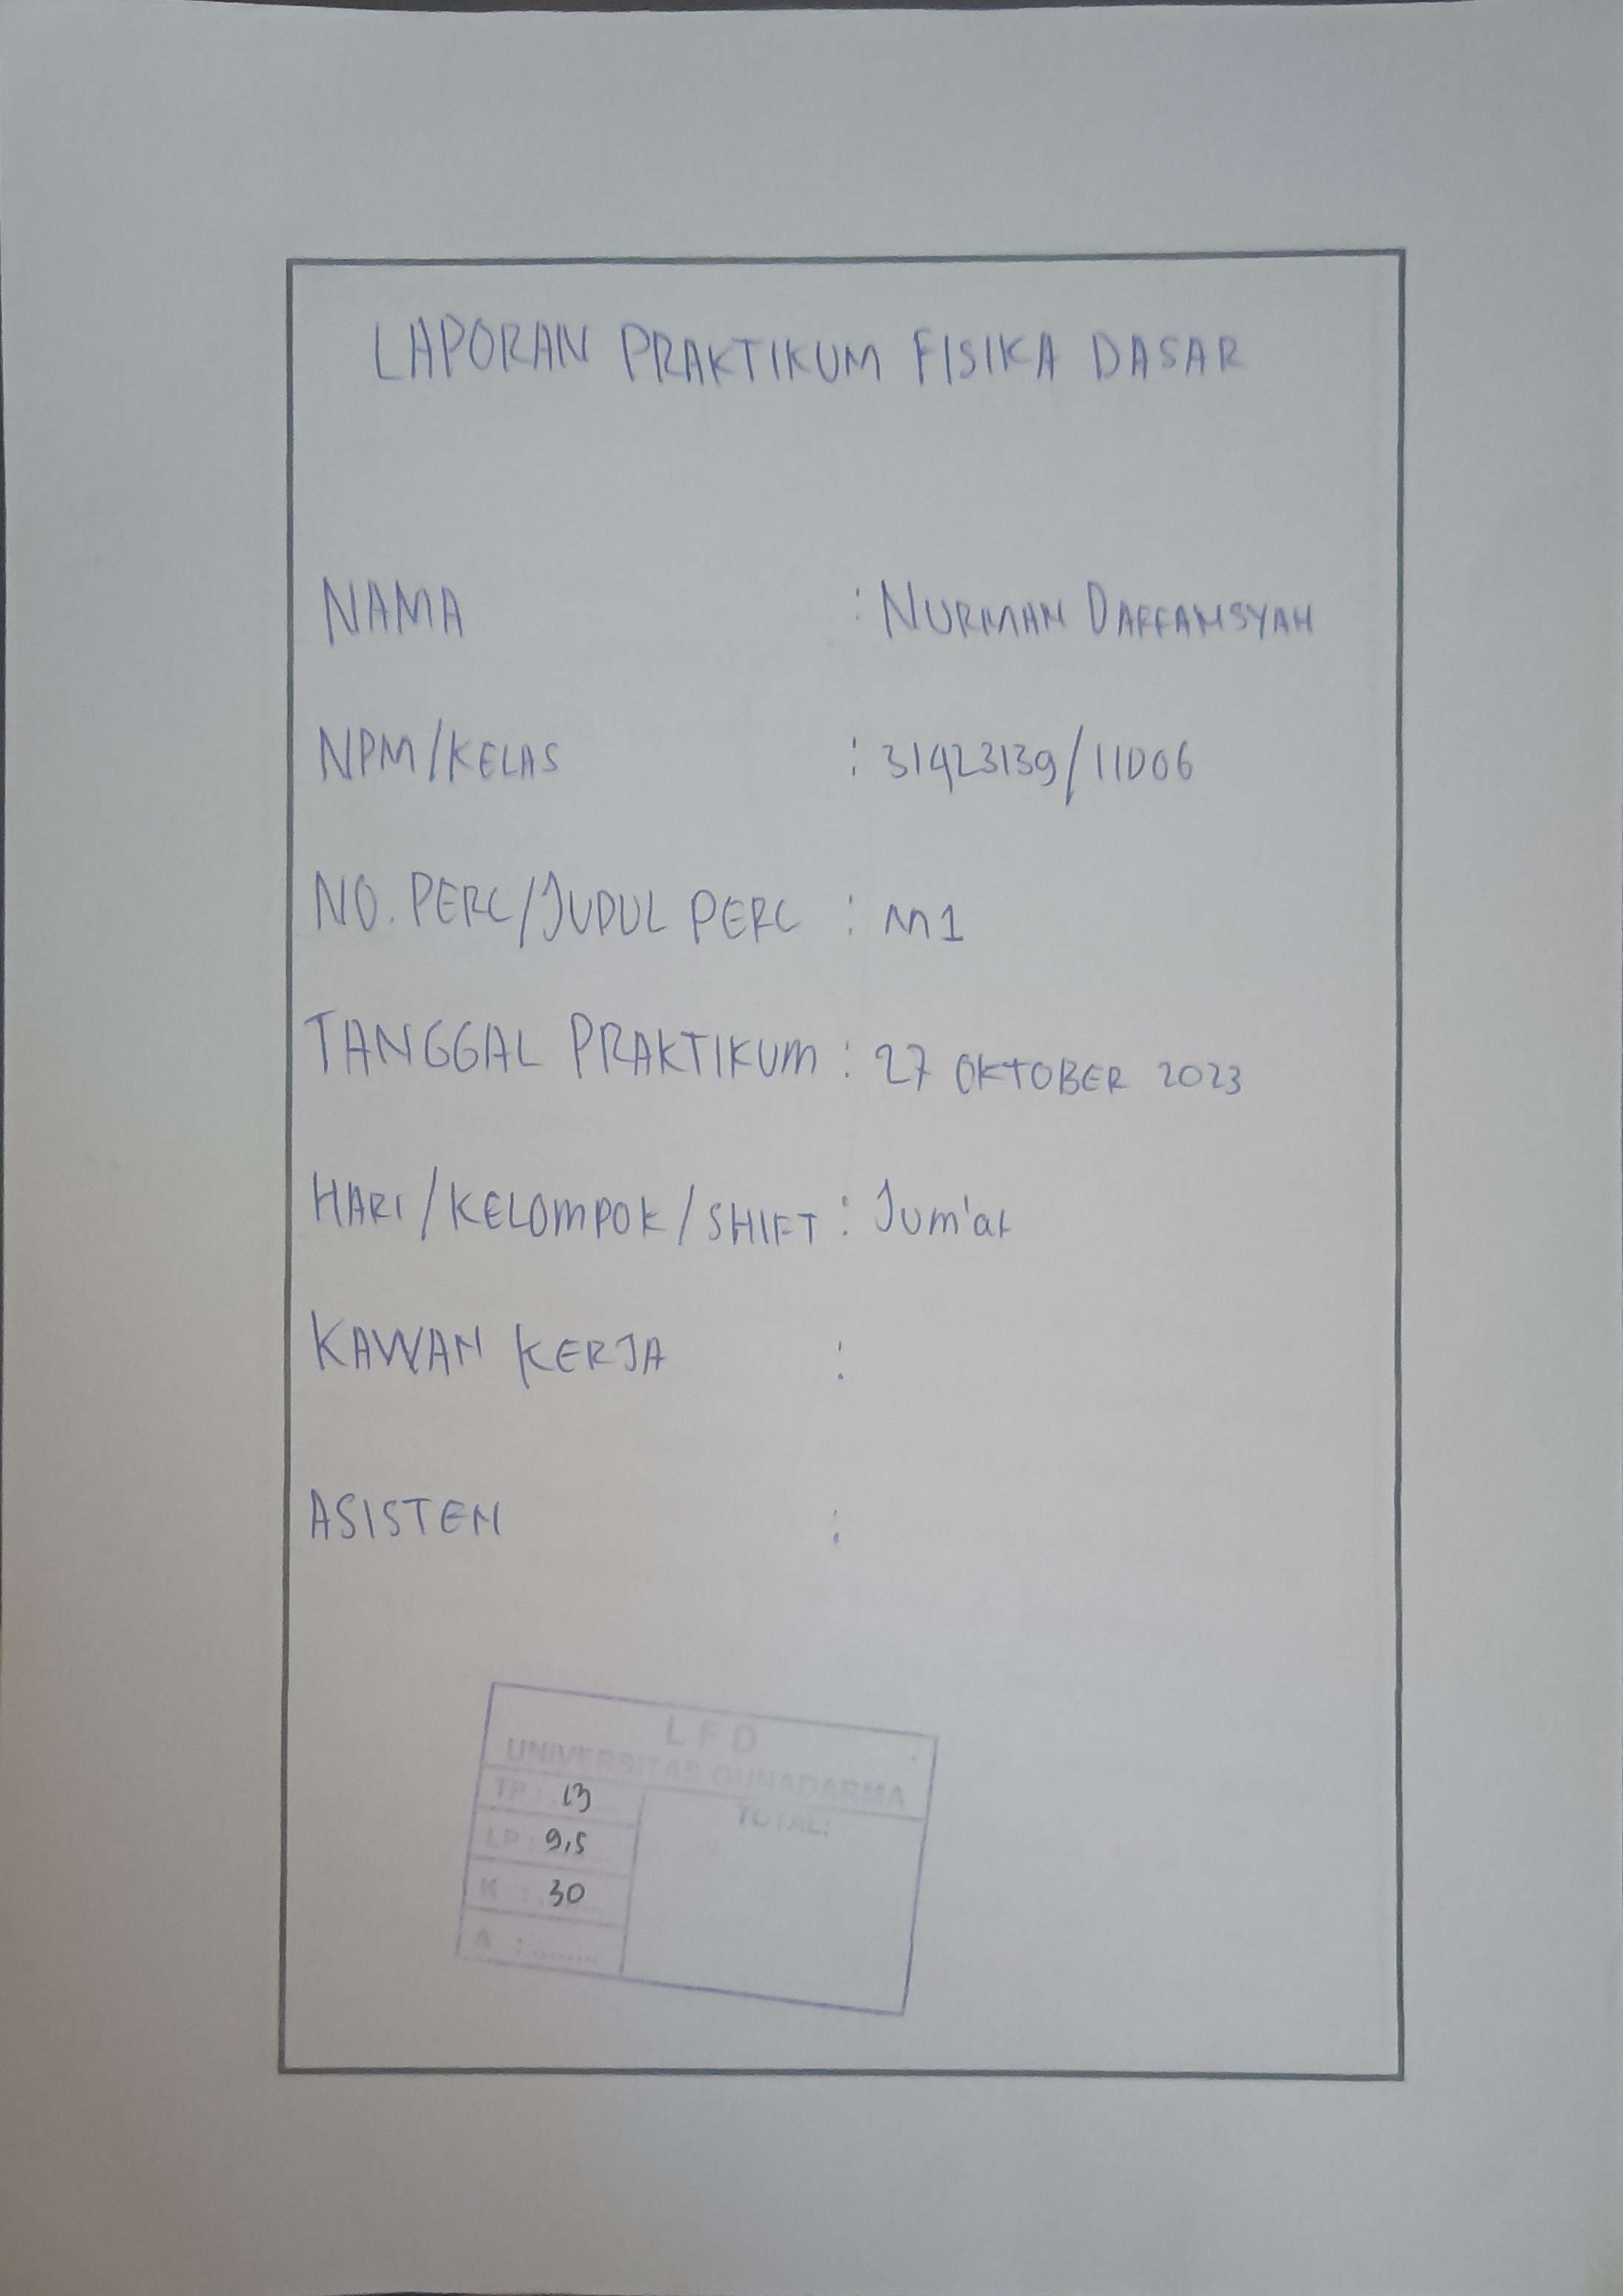 LAPORAN PRAKTIKUM FISIKA DASAR
NAMA : NURMAN DAFFANSYAH
NPM/KELAS : 31423139/11D06
NO. PERC/JUDUL PERC : M1
TANGGAL PRAKTIKUM : 27 OKTOBER 2023
HARI/KELOMPOK/SHIFT : Jum'at
KAWAN KERJA :
ASISTEN :
LFD
UNIVERSITAS GUNADARMA
TP : 13
TOTAL:
LP : 9,5
K : 30
A : ........